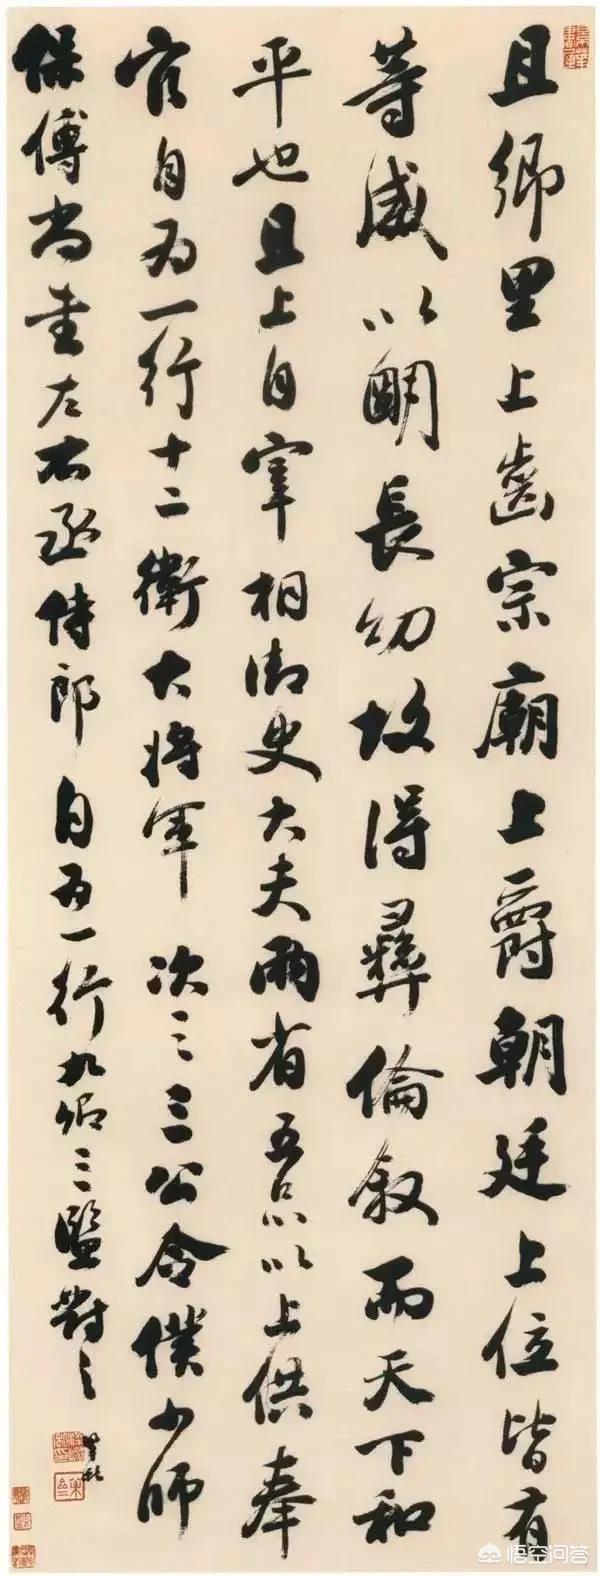 且鄉里上齒宗廟上爵朝廷上位皆有
等威以朙長幼故得彝倫叙而天下和
平也且上自宰相御史大夫兩省五品以上供奉
官自为一行十二衛大将軍次之三公令僕少師
保傅尚書左右丞侍郎自为一行九卿三監對之
悟空问答